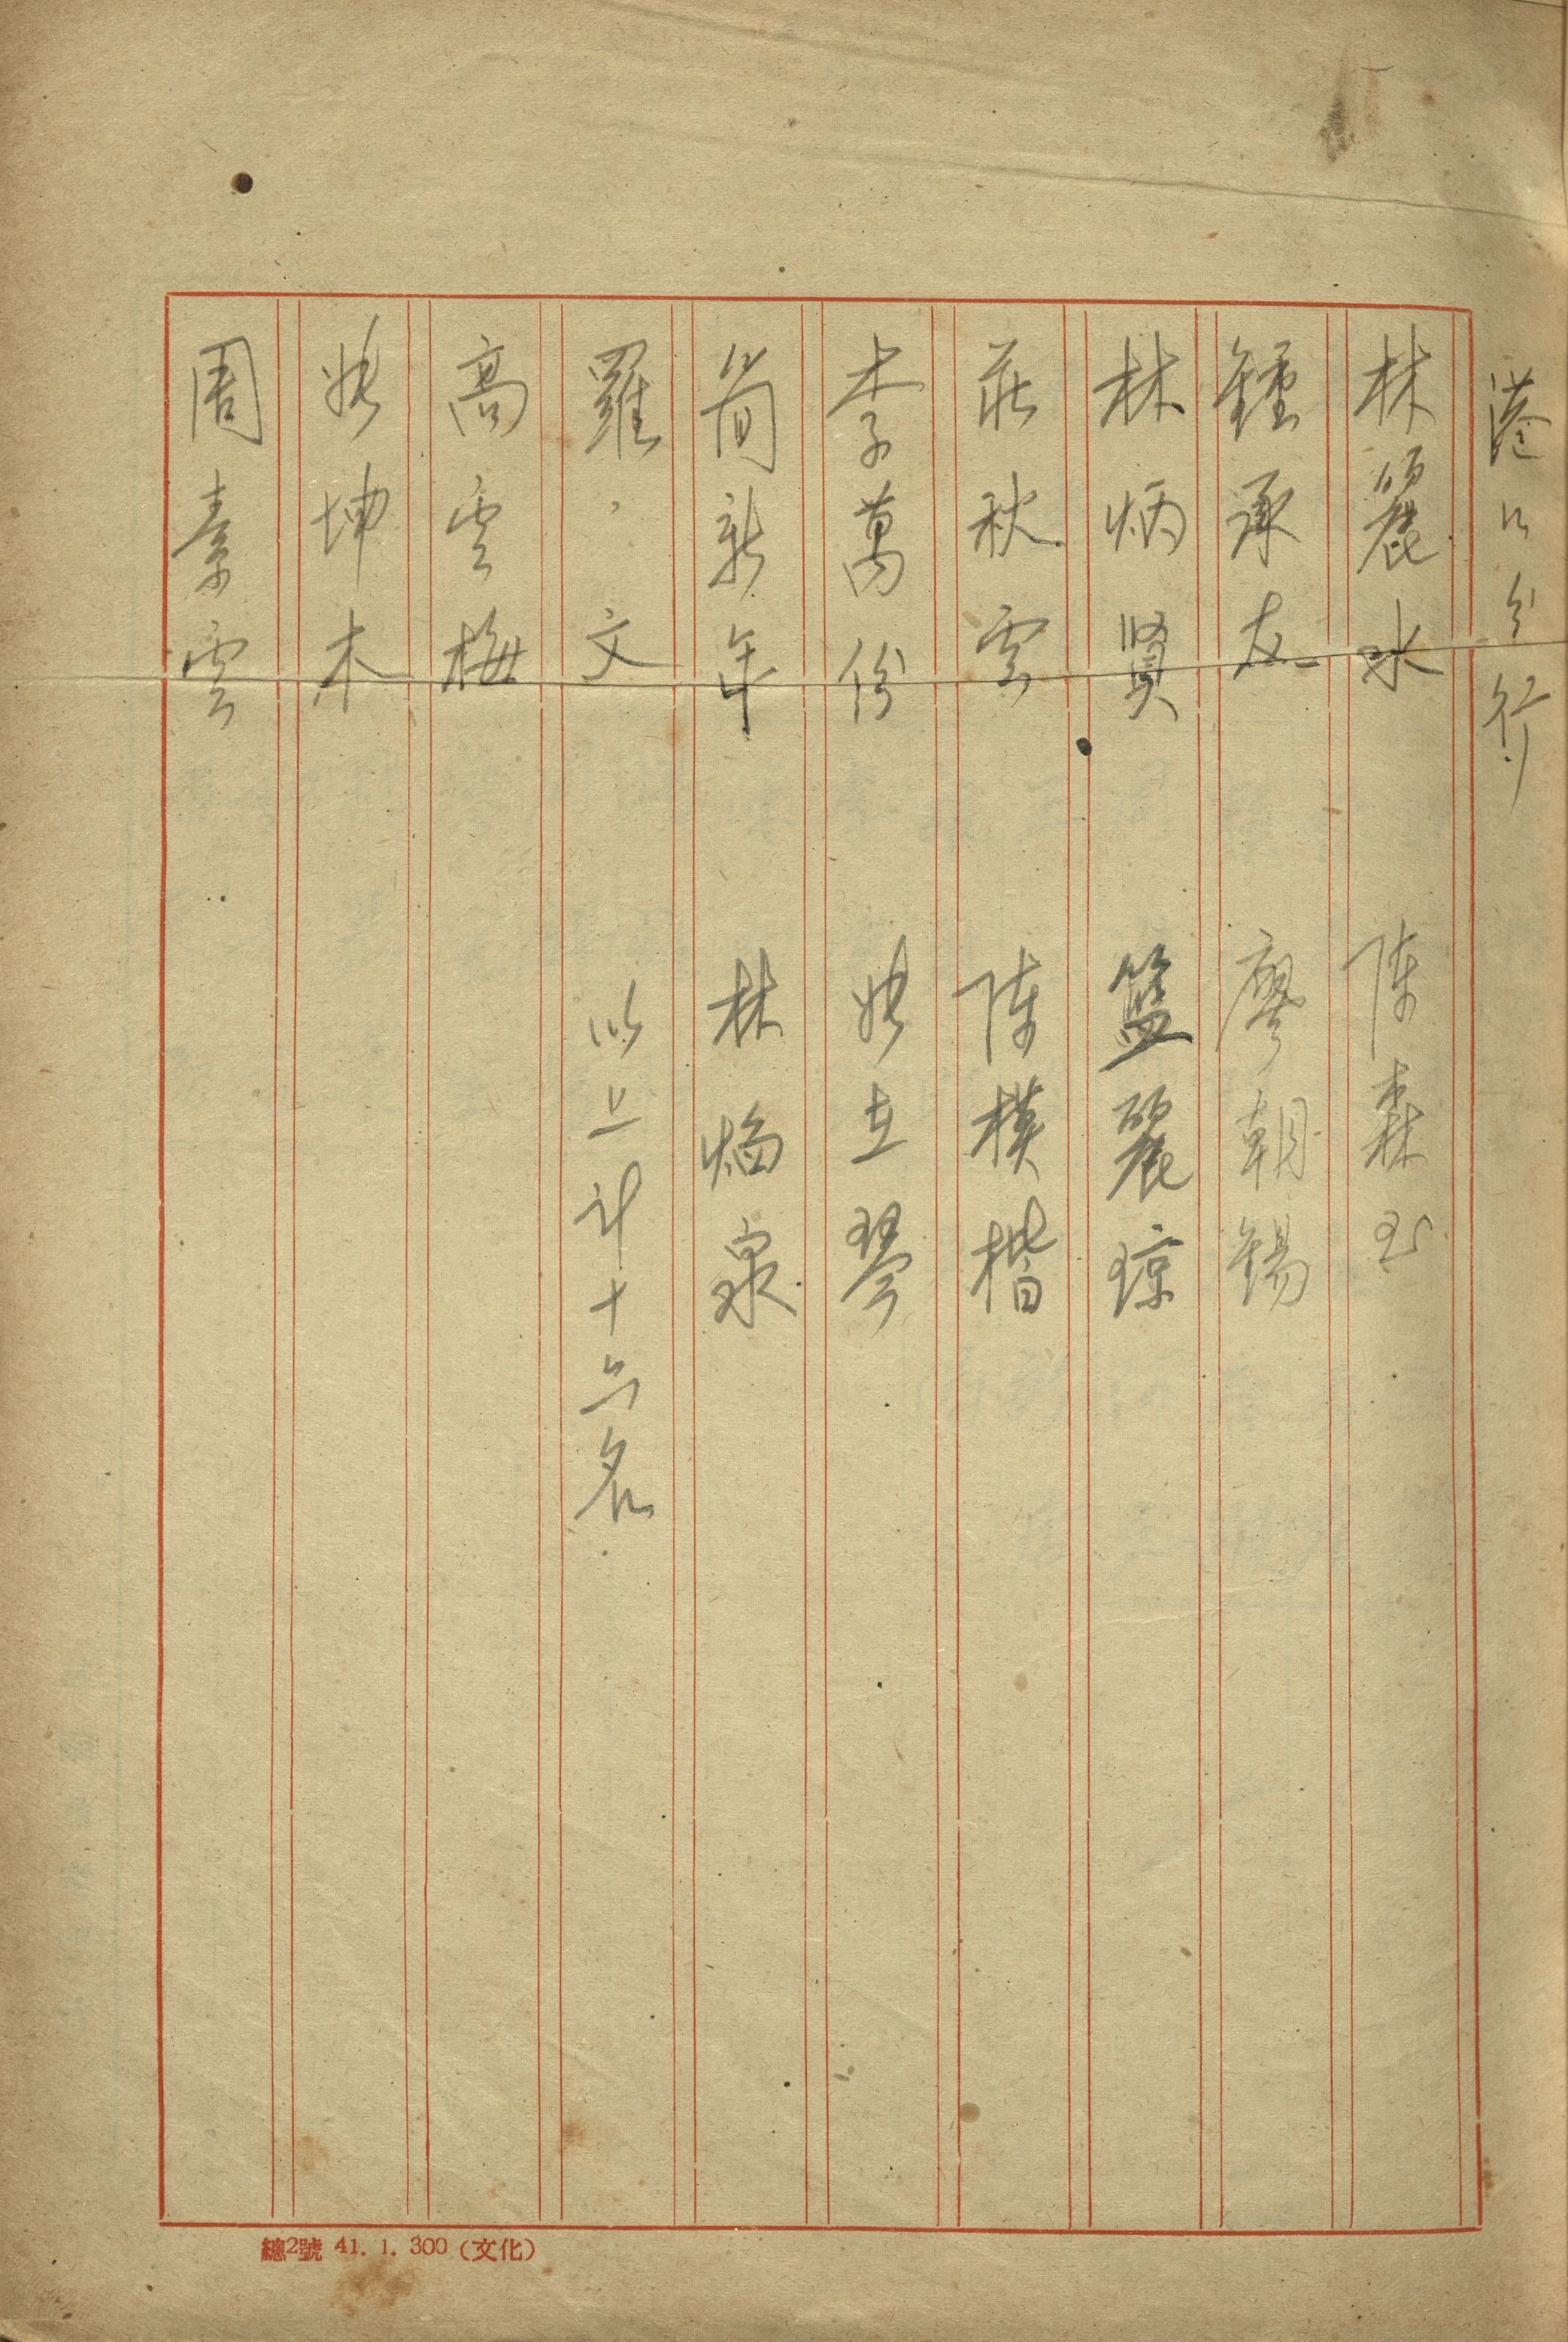 港口分行
林麗水
鍾承友
林炳賢
莊秋雲
李萬份
簡新年
羅文
高雲梅
坤木
周素雲
陳森玉
廖朝錫
籃麗琼
陳模楷
玉琴
林焰泉
以上計十六名
總2號 41. 1. 300 (文化)